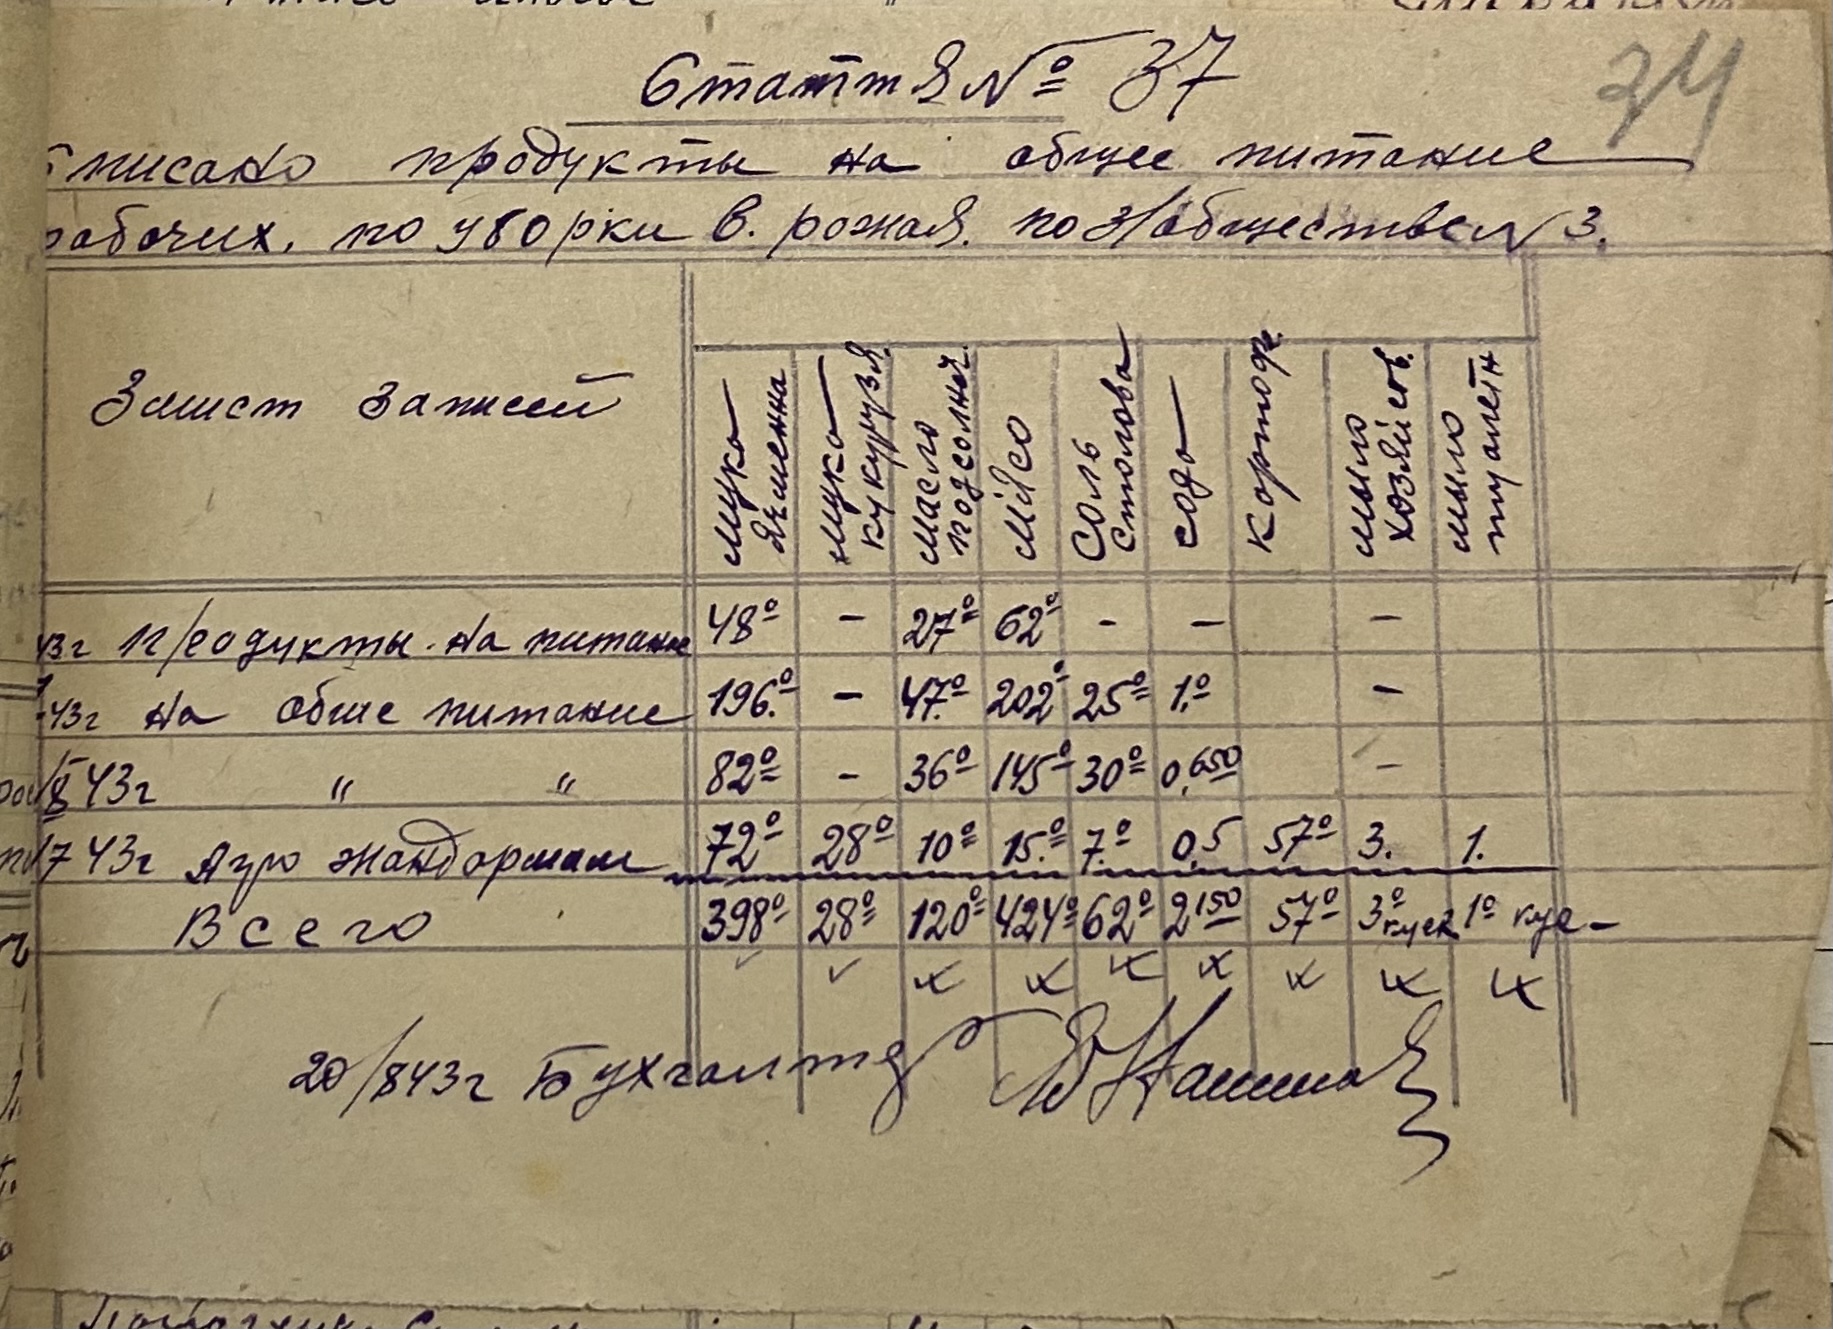 Стаття № 37
34
писано продукты на общее питание
рабочих. по уборки в. рожая. по З/обществе N 3.
Змист записей
мука ячменна
мука кукурузя.
масло подсолнеч.
мясо
Соль столова
сода
картофе.
мыло хозяйсов.
мыло туалетн
43г продукты на питание 48º - 27º 62º - - -
43г на обще питание 196.º - 47.º 202º 25º 1.º -
/8 43г " " 82º - 36º 145º 30º 0,650 -
/7 43г Агро жандормам 72º 28º 10º 15.º 7.º 0,5 57º 3. 1.
Всего 398º 28º 120º 424º 62º 2150 57º 3º куск 1º кус-
20/8 43г Бухгалтер